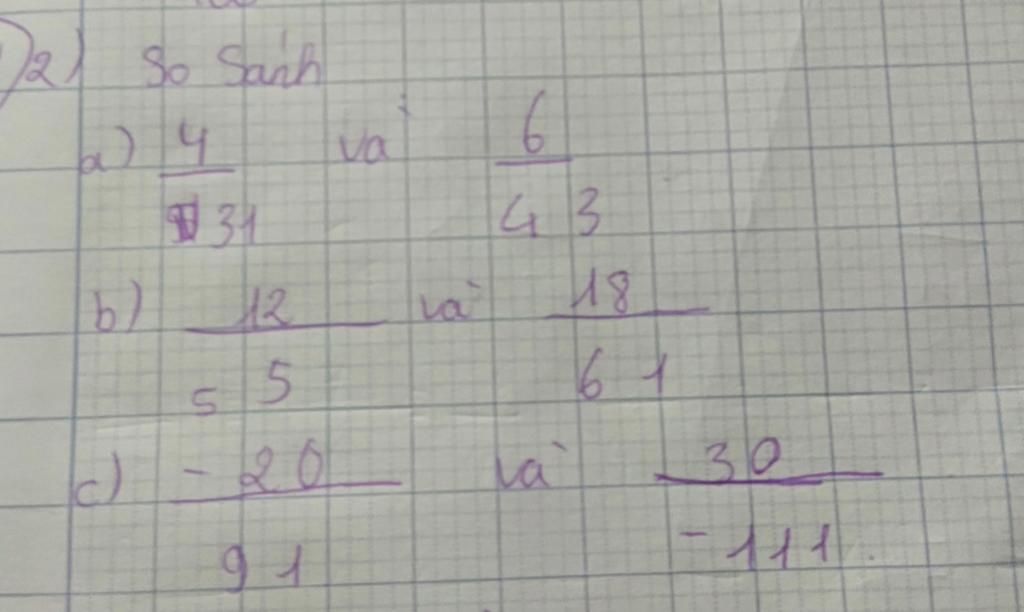 2) So sánh
a) 4/31 và 6/43
b) 12/55 và 18/61
c) -20/91 và 30/-111